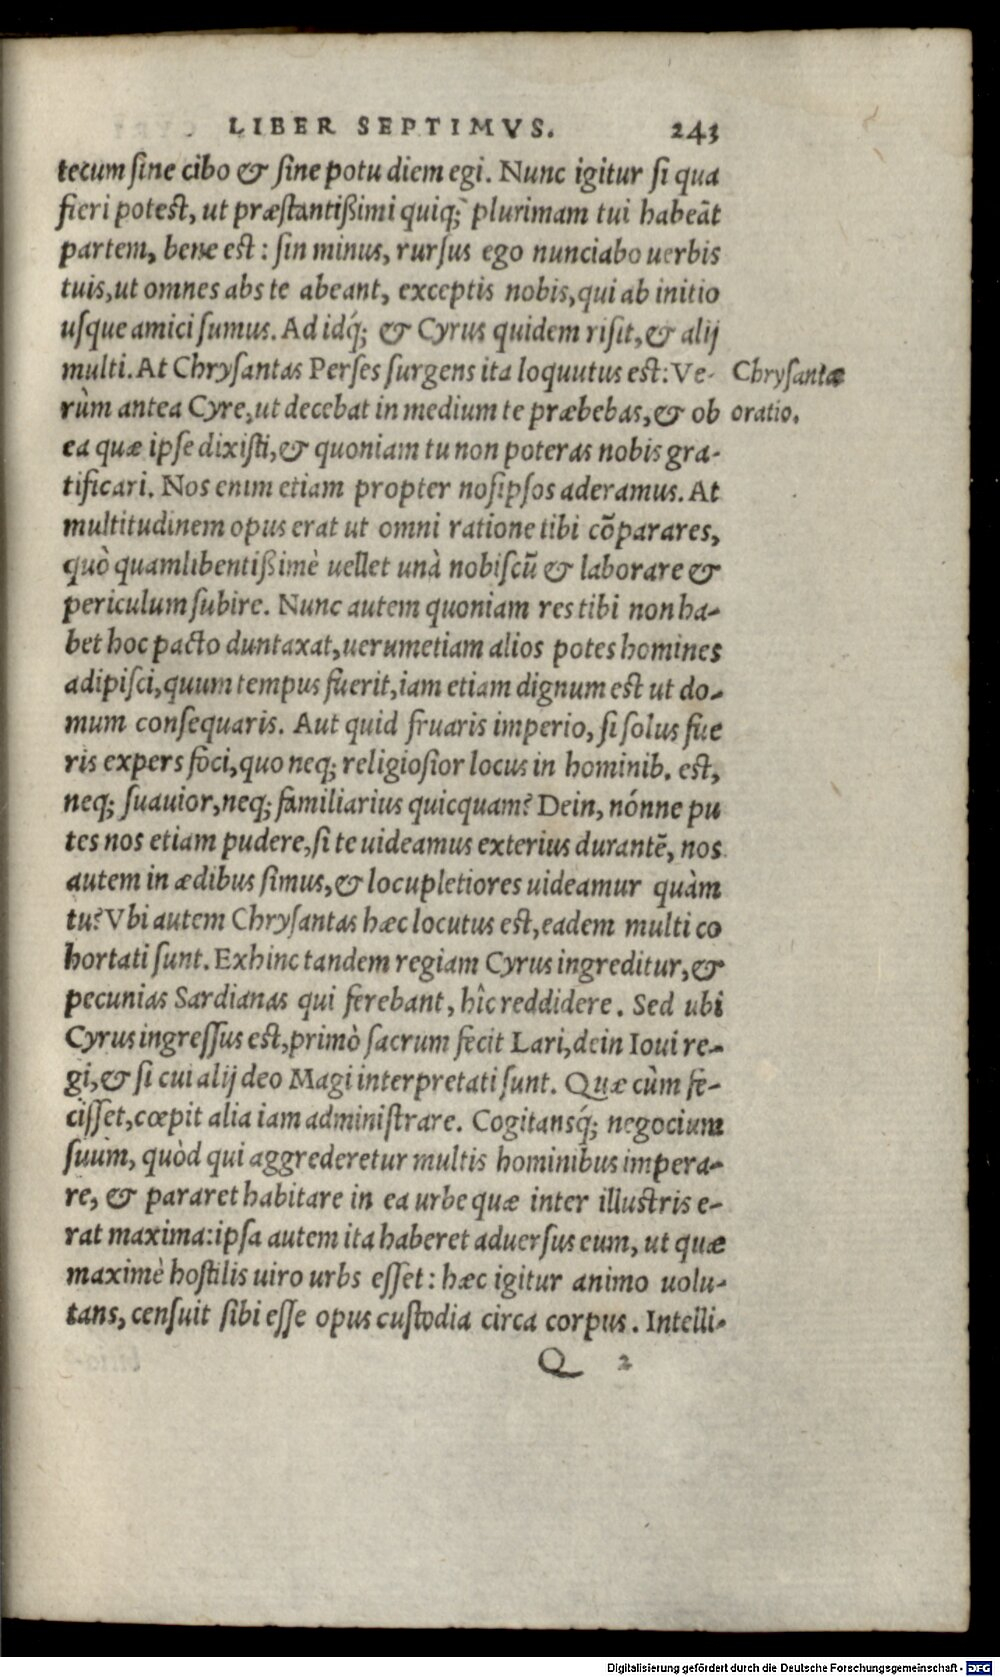 LIBER SEPTIMVS. 243
tecum sine cibo & sine potu diem egi. Nunc igitur si qua
fieri potest, ut præstantißimi quiq; plurimam tui habeãt
partem, bene est: sin minus, rursus ego nunciabo uerbis
tuis, ut omnes abs te abeant, exceptis nobis, qui ab initio
usque amici sumus. Ad idq́; & Cyrus quidem risit, & alij
multi. At Chrysantas Perses surgens ita loquutus est: Ve-
Chrysantæ
rùm antea Cyre, ut decebat in medium te præbebas, & ob
oratio.
ea quæ ipse dixisti, & quoniam tu non poteras nobis gra-
tificari. Nos enim etiam propter nosipsos aderamus. At
multitudinem opus erat ut omni ratione tibi cõparares,
quò quamlibentißimè uellet unà nobiscũ & laborare &
periculum subire. Nunc autem quoniam res tibi non ha-
bet hoc pacto duntaxat, uerumetiam alios potes homines
adipisci, quum tempus fuerit, iam etiam dignum est ut do-
mum consequaris. Aut quid fruaris imperio, si solus fue
ris expers foci, quo neq; religiosior locus in hominib. est,
neq; suauior, neq; familiarius quicquam? Dein, nónne pu
tes nos etiam pudere, si te uideamus exterius durantẽ, nos
autem in ædibus simus, & locupletiores uideamur quàm
tu? Vbi autem Chrysantas hæc locutus est, eadem multi co
hortati sunt. Exhinc tandem regiam Cyrus ingreditur, &
pecunias Sardianas qui ferebant, hîc reddidere. Sed ubi
Cyrus ingressus est, primò sacrum fecit Lari, dein Ioui re-
gi, & si cui alij deo Magi interpretati sunt. Quæ cùm fe-
cisset, cœpit alia iam administrare. Cogitansq́; negocium
suum, quòd qui aggrederetur multis hominibus impera-
re, & pararet habitare in ea urbe quæ inter illustris e-
rat maxima: ipsa autem ita haberet aduersus eum, ut quæ
maximè hostilis uiro urbs esset: hæc igitur animo uolu-
tans, censuit sibi esse opus custodia circa corpus. Intelli-
Q 2
Digitalisierung gefördert durch die Deutsche Forschungsgemeinschaft - DFG